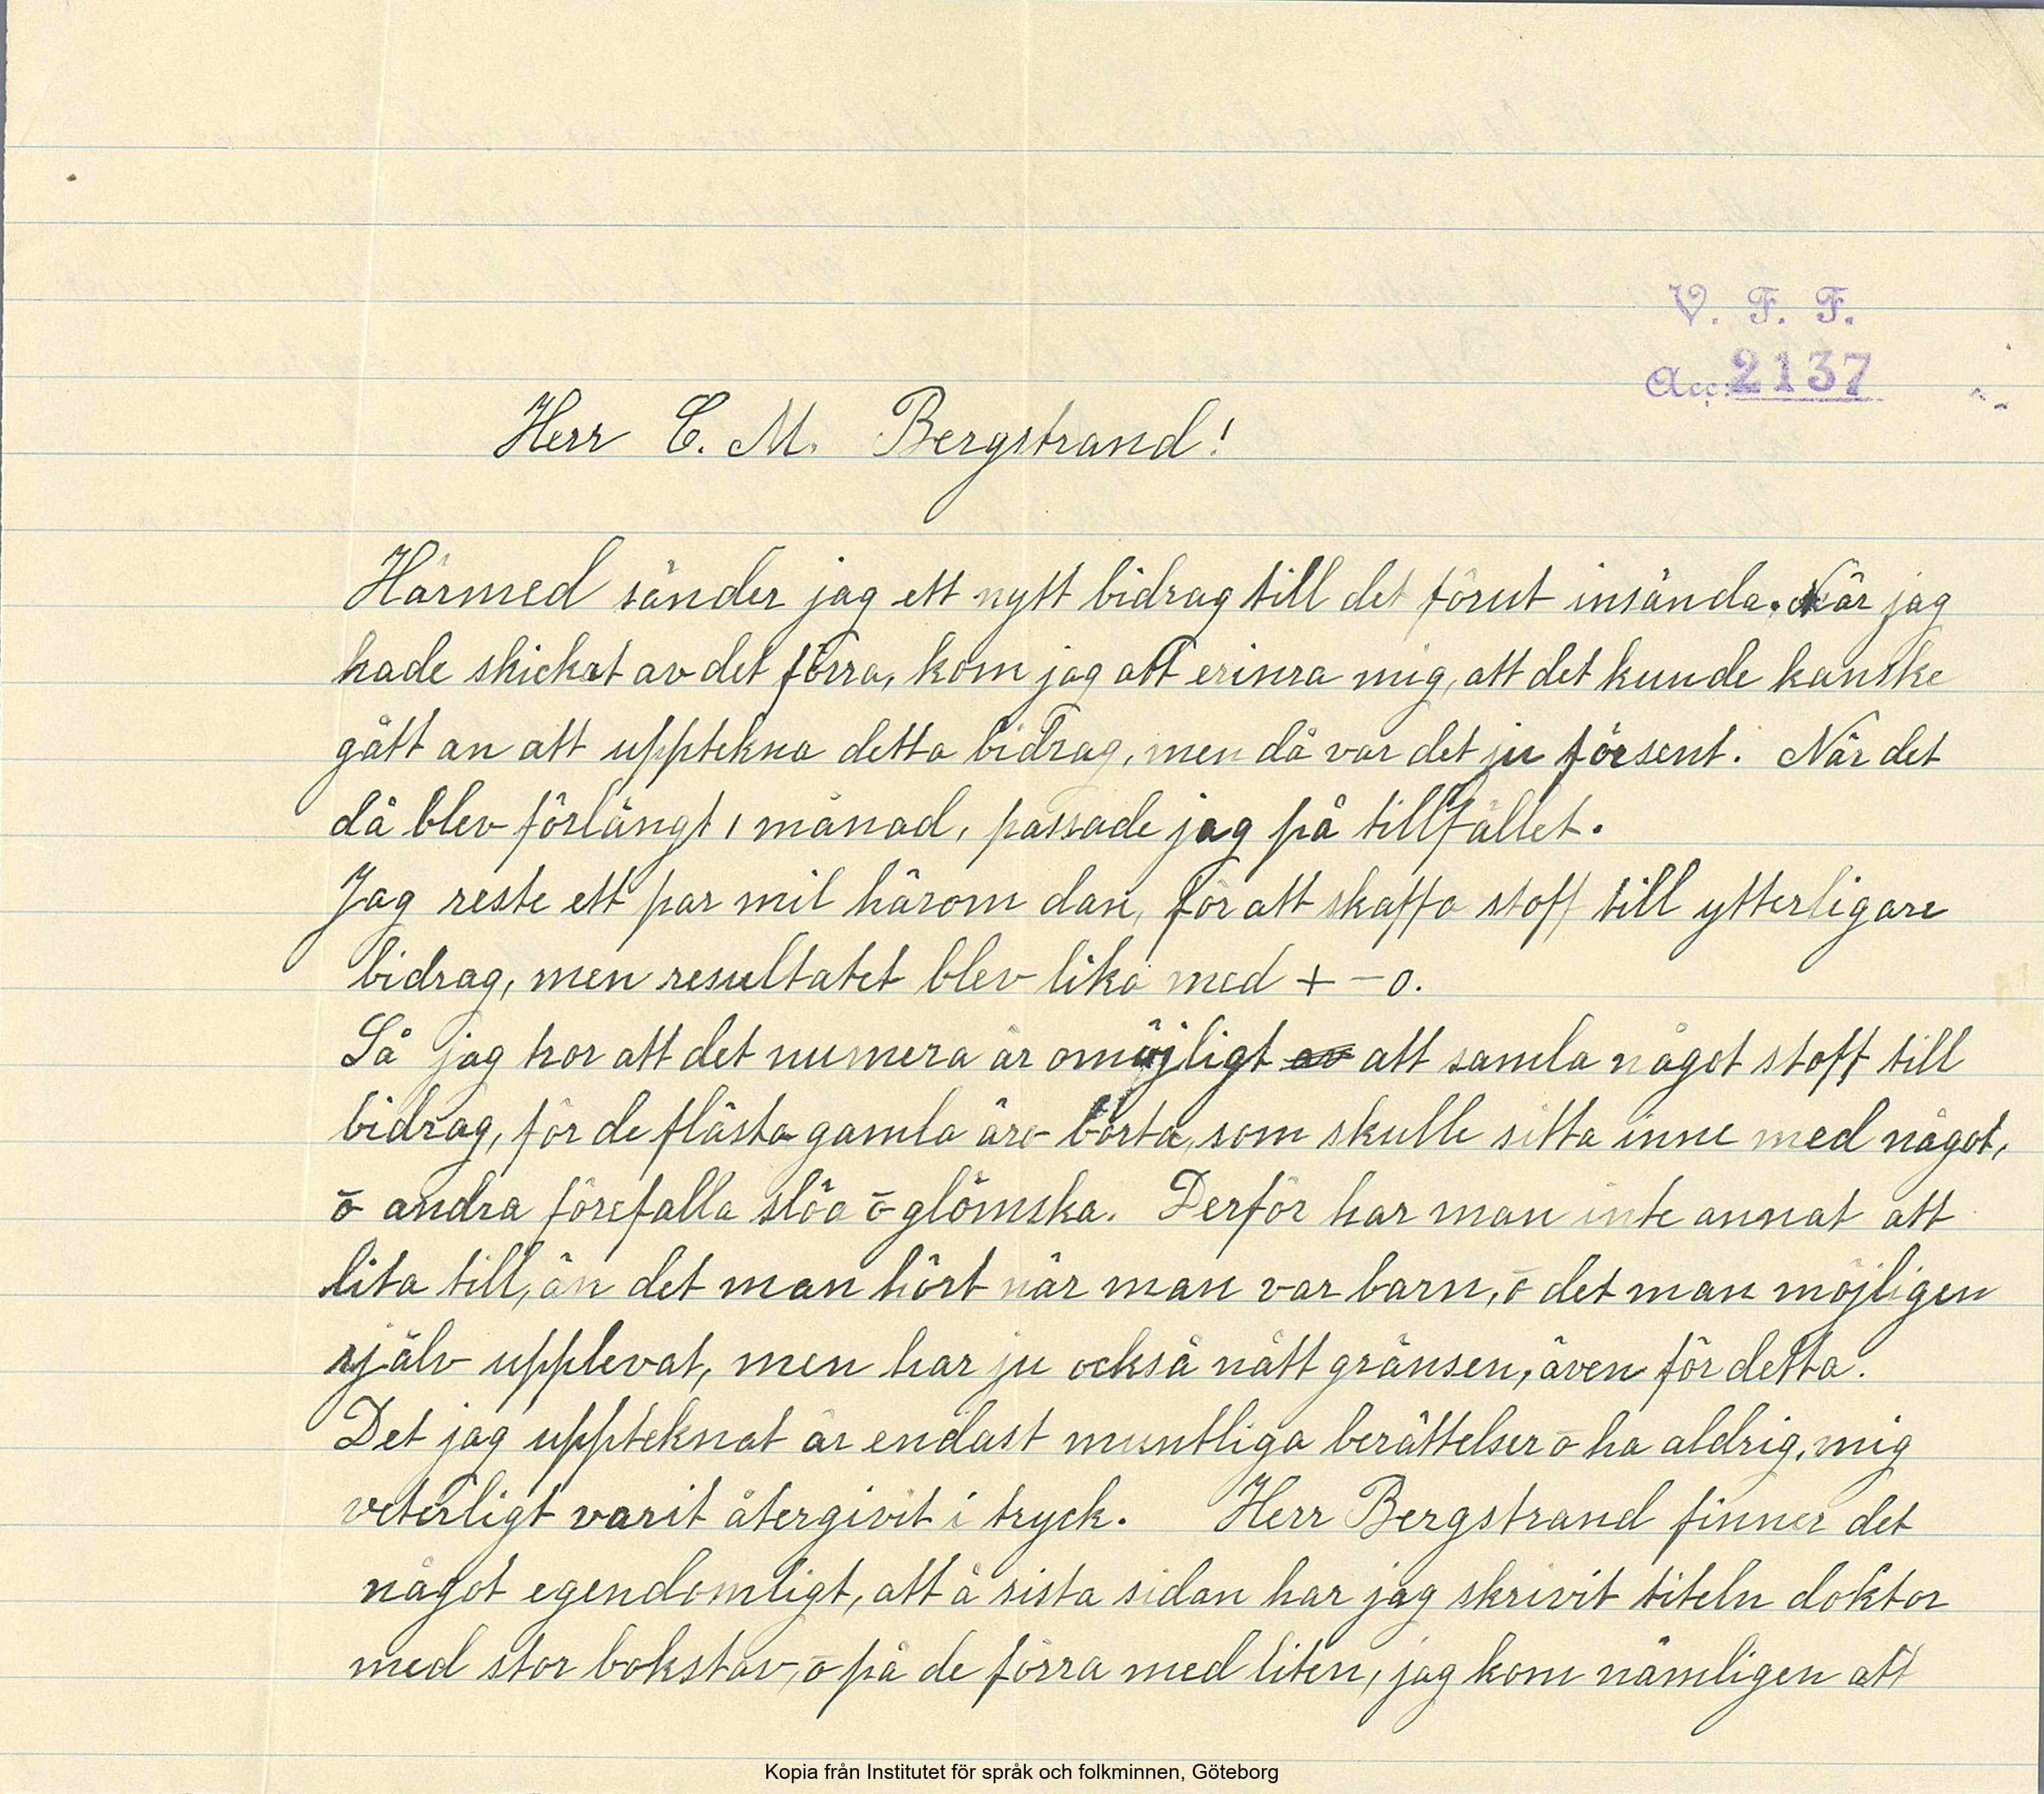 V. F. F.
Acc. 2137
Herr C. M. Bergstrand!
Härmed sänder jag ett nytt bidrag till det förut insända. När jag
hade skickat av det förra, kom jag att erinra mig, att det kunde kanske
gått an att upptekna detta bidrag, men då var det ju försent. När det
då blev förlängt 1 månad, passade jag på tillfället.
Jag reste ett par mil härom dan, för att skaffa stoff till ytterligare
bidrag, men resultatet blev lika med + - 0.
Så jag tror att det numera är omöjligt av att samla något stoff till
bidrag, för de flästa gamla äro borta, som skulle sitta inne med något,
ō andra förefalla slöa ō glömska. Derför har man inte annat att
lita till, än det man hört när man var barn, ō det man möjligen
själv upplevat, men har ju också nått gränsen, även för detta.
Det jag uppteknat är endast muntliga berättelser ō ha aldrig, mig
veterligt varit återgivit i tryck. Herr Bergstrand finner det
något egendomligt, att å sista sidan har jag skrivit titeln doktor
med stor bokstav, ō på de förra med liten, jag kom nämligen att
Kopia från Institutet för språk och folkminnen, Göteborg